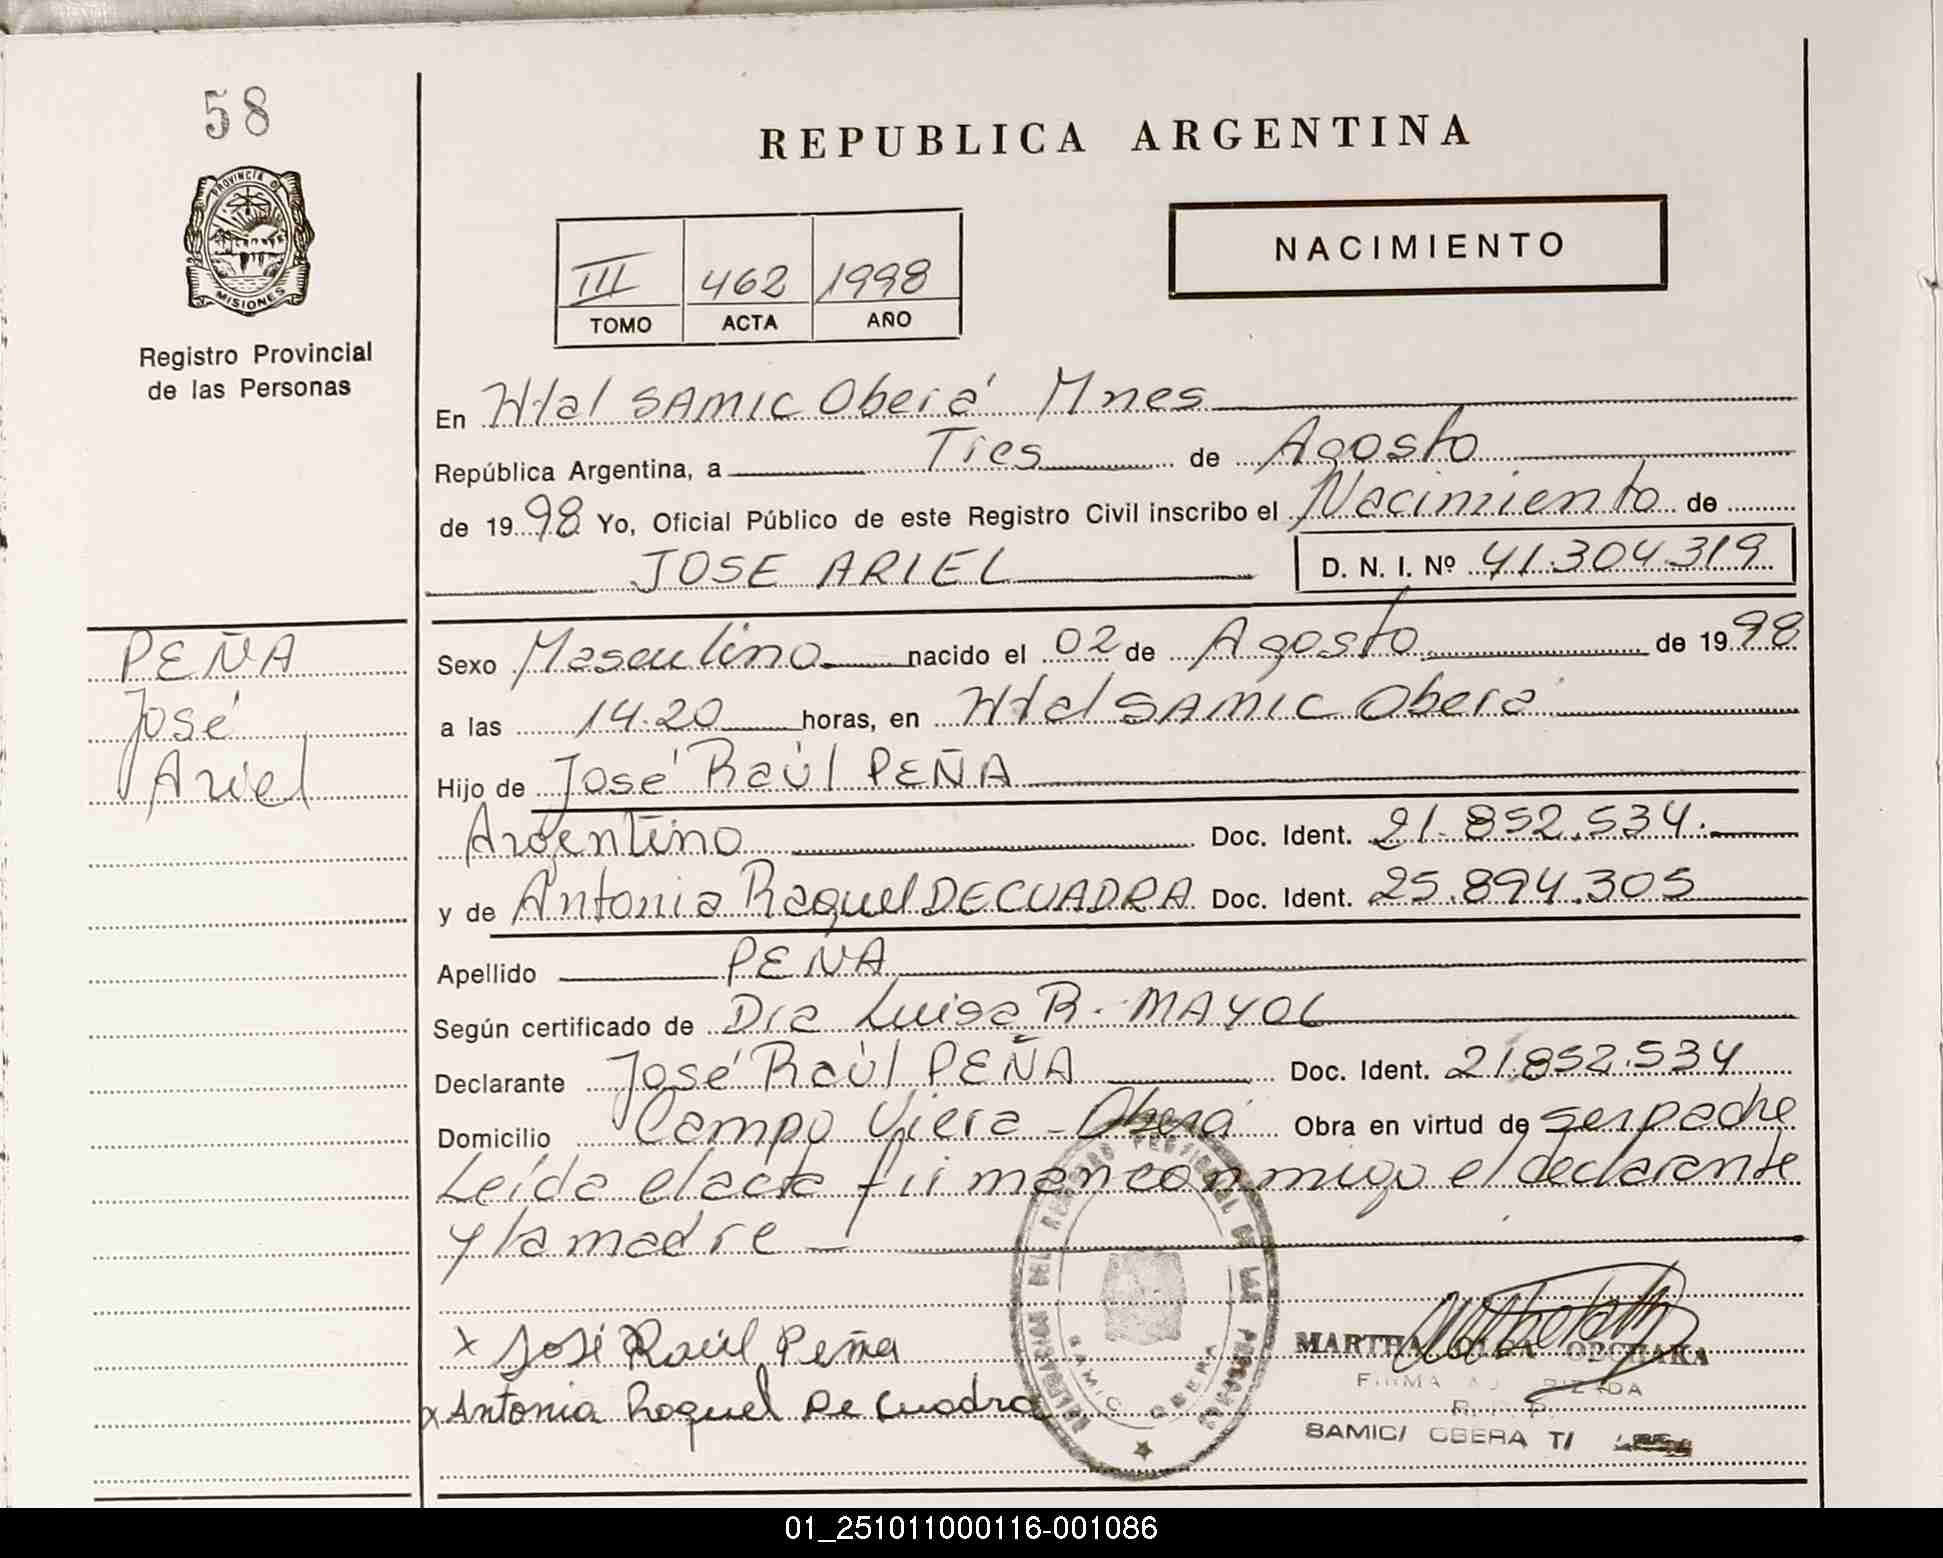 58
REPUBLICA ARGENTINA
PROVINCIA DE
MISIONES
NACIMIENTO
III 462 1998
TOMO ACTA AÑO
Registro Provincial
de las Personas
En Htal SAMIC Oberá Mnes
República Argentina, a Tres de Agosto
de 1998 Yo, Oficial Público de este Registro Civil inscribo el Nacimiento de
JOSE ARIEL D. N. I. Nº 41.304.319
PEÑA
José
Ariel
Sexo Masculino nacido el 02 de Agosto de 1998
a las 14.20 horas, en Htal SAMIC Oberá
Hijo de José Raúl PEÑA
Argentino Doc. Ident. 21.852.534.
y de Antonia Raquel DECUADRA Doc. Ident. 25.894.305
Apellido PEÑA
Según certificado de Dra Luisa R. MAYOL
Declarante José Raúl PEÑA Doc. Ident. 21.852.534
Domicilio Campo Viera - Oberá Obra en virtud de ser padre
Leída el acta firman conmigo el declarante
y la madre
x José Raúl Peña
x Antonia Raquel De Cuadra
DEL REGISTRO DE LAS PERSONAS
SAMIC OBERA
MARTHA
FIRMA AUTORIZADA
R. P. P.
SAMIC/ OBERA T/
01_251011000116-001086